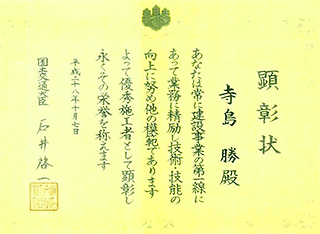 顕彰状
寺島 勝 殿
あなたは常に建設事業の第一線に
あって業務に精励し技術・技能の
向上に努め他の模範であります
よって優秀施工者として顕彰し
永くその栄誉を称えます
平成二十八年十月七日
国土交通大臣 石井啓一